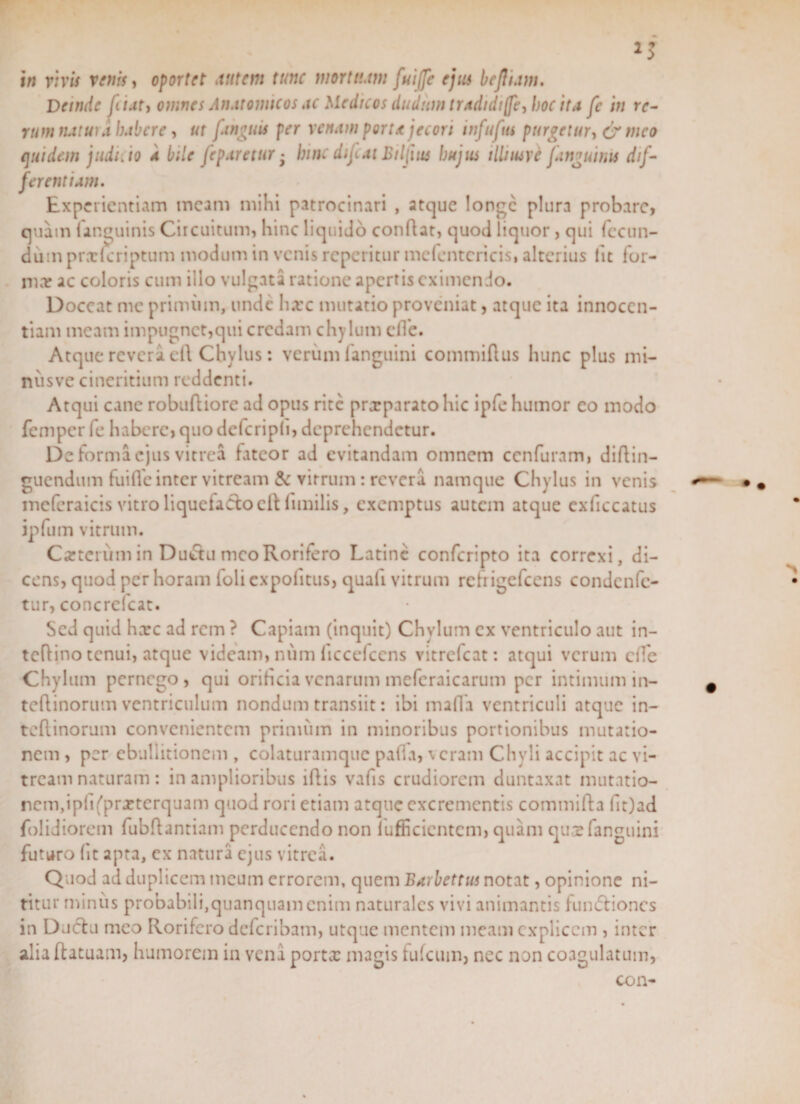 23
in vivis venis, oportet autem tunc mortuam fuiſſe ejus beſtiam.
Deinde ſciat, omnes Anatomicos ac Medicos dudum tradidiſſe, hoc ita ſe in re-
rum naturâ habere, ut ſanguis per venam portæ jecori infuſus purgetur, & meo
quidem judicio à bile ſeparetur; hinc diſcat Bilſius hujus illiusvè ſanguinis dif-
ferentiam.
Experientiam meam mihi patrocinari , atque longè plura probare,
quàm ſanguinis Circuitum, hinc liquidò conſtat, quod liquor, qui ſecun-
dùm præſcriptum modum in venis reperitur meſentericis, alterius ſit for-
mæ ac coloris cum illo vulgatâ ratione apertis eximendo.
Doceat me primùm, undè hæc mutatio proveniat, atque ita innocen-
tiam meam impugnet, qui credam chylum eſſe.
Atque reverâ eſt Chylus: verùm ſanguini commiſtus hunc plus mi-
nùsve cineritium reddenti.
Atqui cane robuſtiore ad opus ritè præparato hic ipſe humor eo modo
ſemper ſe habere, quo deſcripſi, deprehendetur.
De formâ ejus vitreâ fateor ad evitandam omnem cenſuram, diſtin-
guendum fuiſſe inter vitream & vitrum: reverâ namque Chylus in venis
meſeraicis vitro liquefacto eſt ſimilis, exemptus autem atque exſiccatus
ipſum vitrum.
Cæterùm in Ductu meo Rorifero Latinè conſcripto ita correxi, di-
cens, quod per horam ſoli expoſitus, quaſi vitrum refrigeſcens condenſe-
tur, concreſcat.
Sed quid hæc ad rem? Capiam (inquit) Chylum ex ventriculo aut in-
teſtino tenui, atque videam, nùm ſicceſcens vitreſcat: atqui verum eſſe
Chylum pernego, qui orificia venarum meſeraicarum per intimum in-
teſtinorum ventriculum nondum transiit: ibi maſſa ventriculi atque in-
teſtinorum convenientem primùm in minoribus portionibus mutatio-
nem, per ebullitionem, colaturamque paſſa, veram Chyli accipit ac vi-
tream naturam: in amplioribus iſtis vaſis crudiorem duntaxat mutatio-
nem, ipſi (præterquam quod rori etiam atque excrementis commiſta ſit) ad
ſolidiorem ſubſtantiam perducendo non ſufficientem, quàm quæ ſanguini
futuro ſit apta, ex naturâ ejus vitreâ.
Quod ad duplicem meum errorem, quem Barbettus notat, opinione ni-
titur minùs probabili, quanquam enim naturales vivi animantis functiones
in Ductu meo Rorifero deſcribam, utque mentem meam explicem, inter
alia ſtatuam, humorem in venâ portæ magis fuſcum, nec non coagulatum,
con-